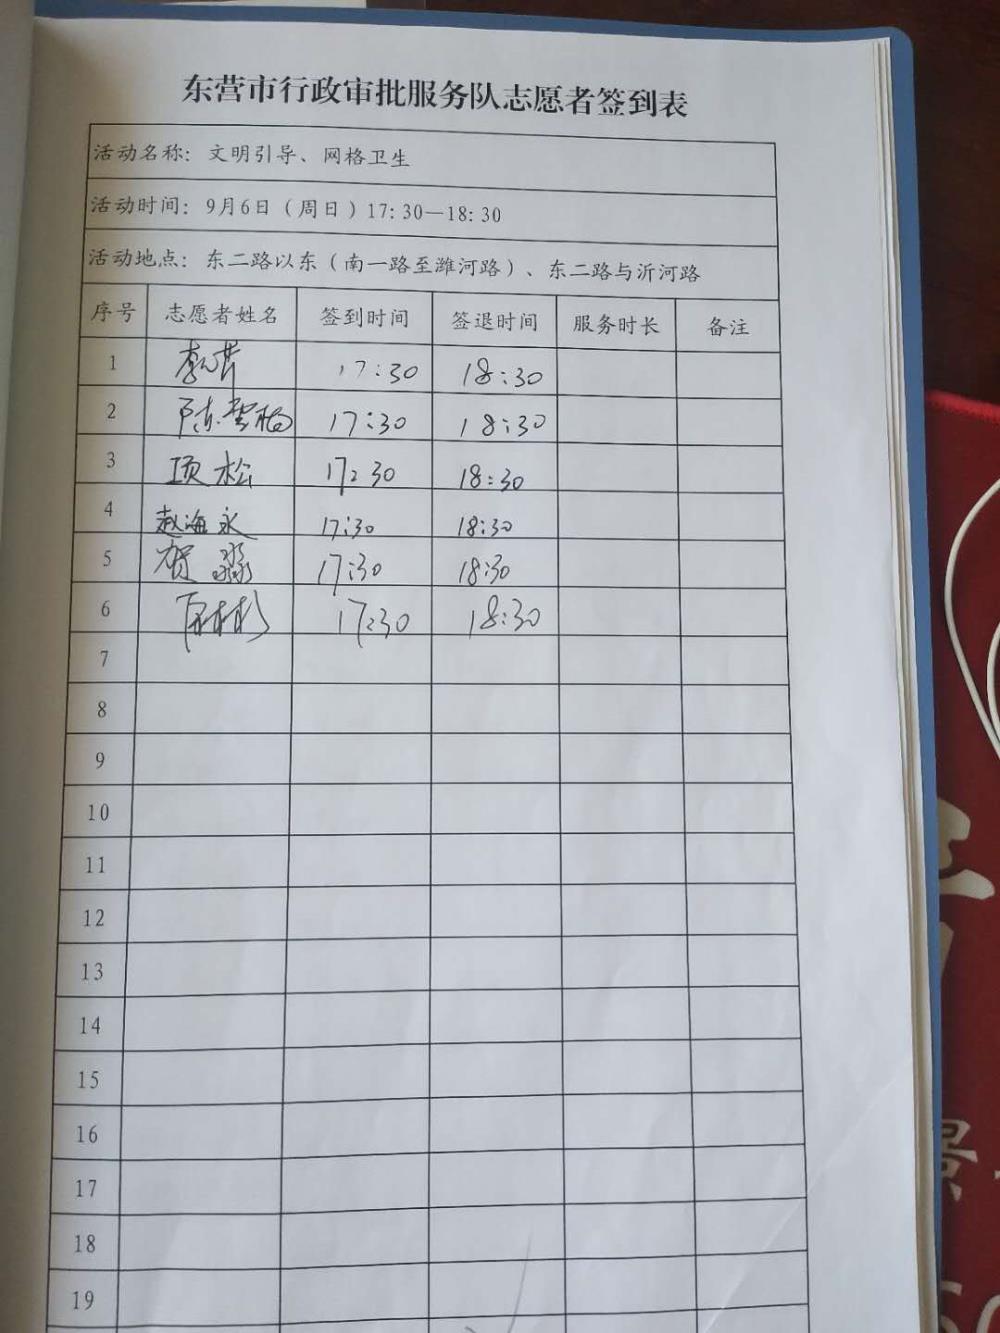 东营市行政审批服务队志愿者签到表
活动名称: 文明引导、网格卫生
活动时间: 9月6日（周日）17:30—18:30
活动地点: 东二路以东（南一路至潍河路）、东二路与沂河路
序号 志愿者姓名 签到时间 签退时间 服务时长 备注
1 17:30 18:30
2 陈雪梅 17:30 18:30
3 项松 17:30 18:30
4 赵海永 17:30 18:30
5 贺淼 17:30 18:30
6 17:30 18:30
7
8
9
10
11
12
13
14
15
16
17
18
19
景